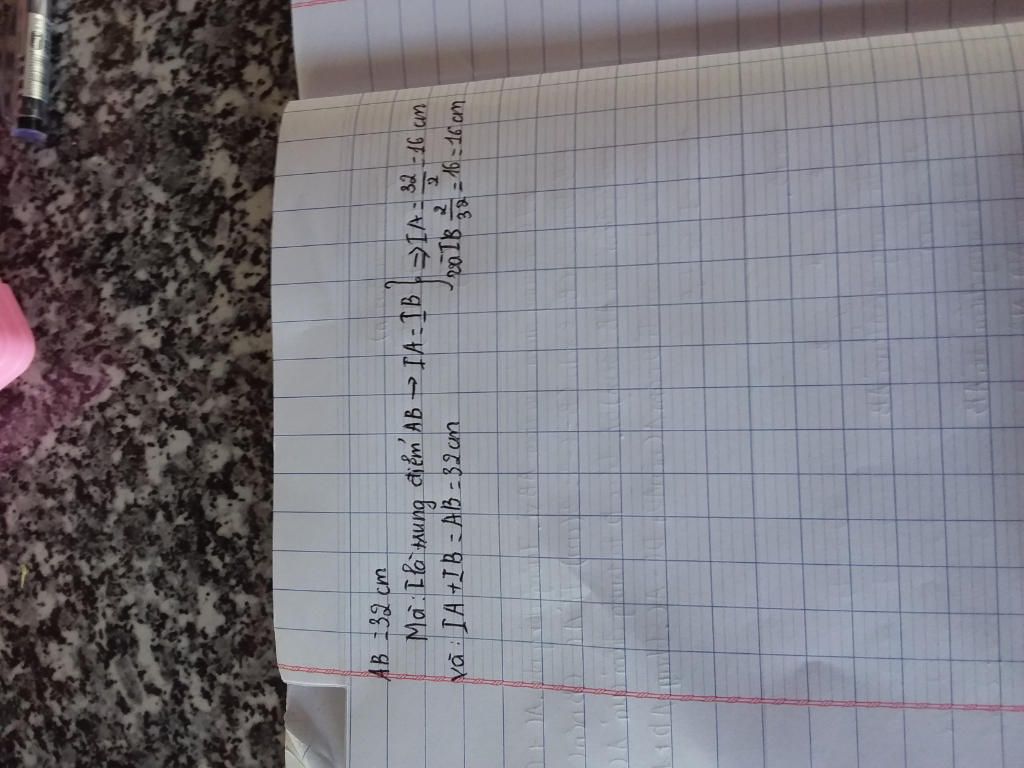 AB = 32 cm
Mà : I là trung điểm AB → IA = IB } ⇒ IA = 32/2 = 16 cm
Và : IA + IB = AB = 32 cm và IB 2/32 = 16 = 16 cm